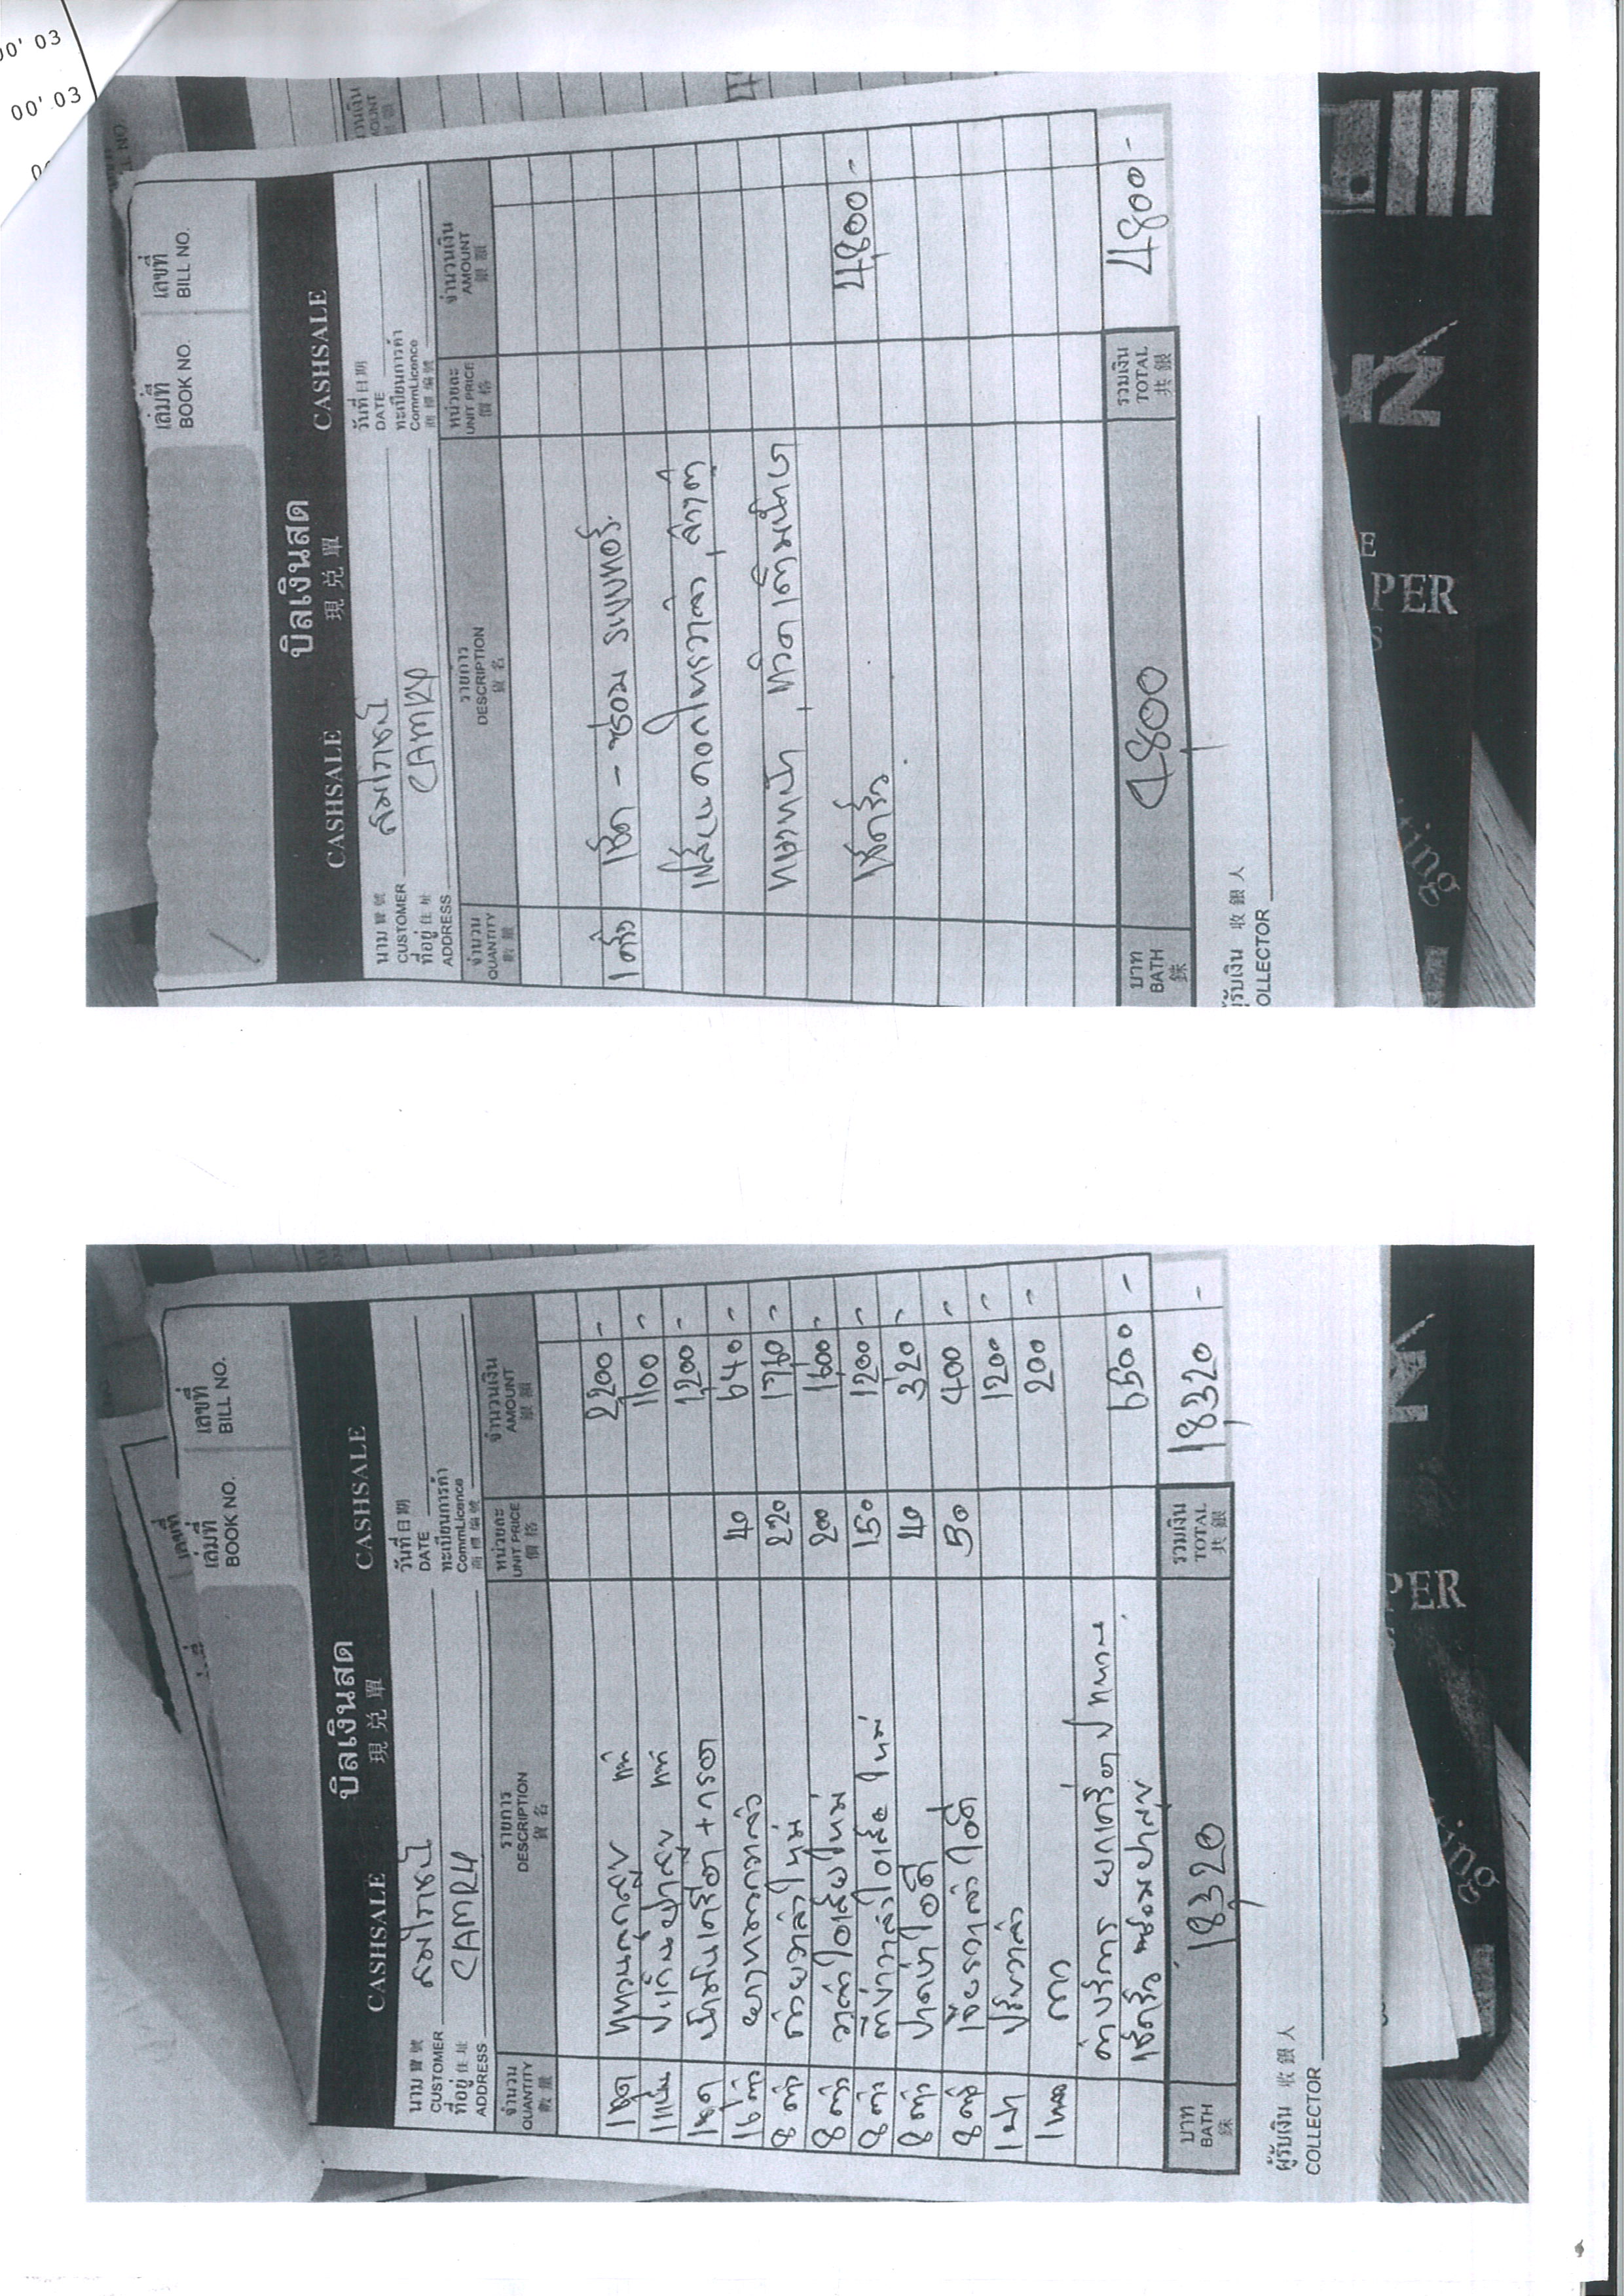 00' 03
00' 03
เล่มที่
BOOK NO.
เลขที่
BILL NO.
CASHSALE
บิลเงินสด
現兌單
CASHSALE
นาม 寶號
CUSTOMER
วันที่ 日期
DATE
ที่อยู่ 住址
ADDRESS
CAMRY
ทะเบียนการค้า
CommLicence
商標編號
จำนวน
QUANTITY
數量
รายการ
DESCRIPTION
貨名
หน่วยละ
UNIT PRICE
價格
จำนวนเงิน
AMOUNT
銀額
1 ครั้ง เช็ค - ซ่อม ระบบเทอร์
เฟืองแคดไทรวาล์ว, ล้างตู้
เช็ครั่ว
4,800 -
บาท
BATH
銖
4,800
รวมเงิน
TOTAL
共銀
4,800 -
ผู้รับเงิน 收銀人
COLLECTOR
PER
เล่มที่
BOOK NO.
เลขที่
BILL NO.
CASHSALE
บิลเงินสด
現兌單
CASHSALE
นาม 寶號
CUSTOMER
วันที่ 日期
DATE
ที่อยู่ 住址
ADDRESS
CAMRY
ทะเบียนการค้า
CommLicence
商標編號
จำนวน
QUANTITY
數量
รายการ
DESCRIPTION
貨名
หน่วยละ
UNIT PRICE
價格
จำนวนเงิน
AMOUNT
銀額
1 ชุด แหวนลูกสูบ แท้ 2,200 -
1 แผ่น ปะเก็นฝาสูบ แท้ 1,100 -
1 ชุด น้ำมันเครื่อง + กรอง 1,200 -
16 ตัว ยางหมวกวาล์ว 40 640 -
8 ตัว ถ้วยวาล์วใหม่ 220 1,760 -
8 ตัว วาล์วไอเสียใหม่ 200 1,600 -
8 ตัว 150 1,200 -
8 ตัว 40 320 -
8 ตัว 50 400 -
1 ฝา ปรับวาล์ว 1200 -
1 หลอด กาว 200 -
ค่าบริการ ยกเครื่อง
เช็ครั่ว ซ่อมฝาสูบ 6,500 -
บาท
BATH
銖
18,320
รวมเงิน
TOTAL
共銀
18,320 -
ผู้รับเงิน 收銀人
COLLECTOR
PER